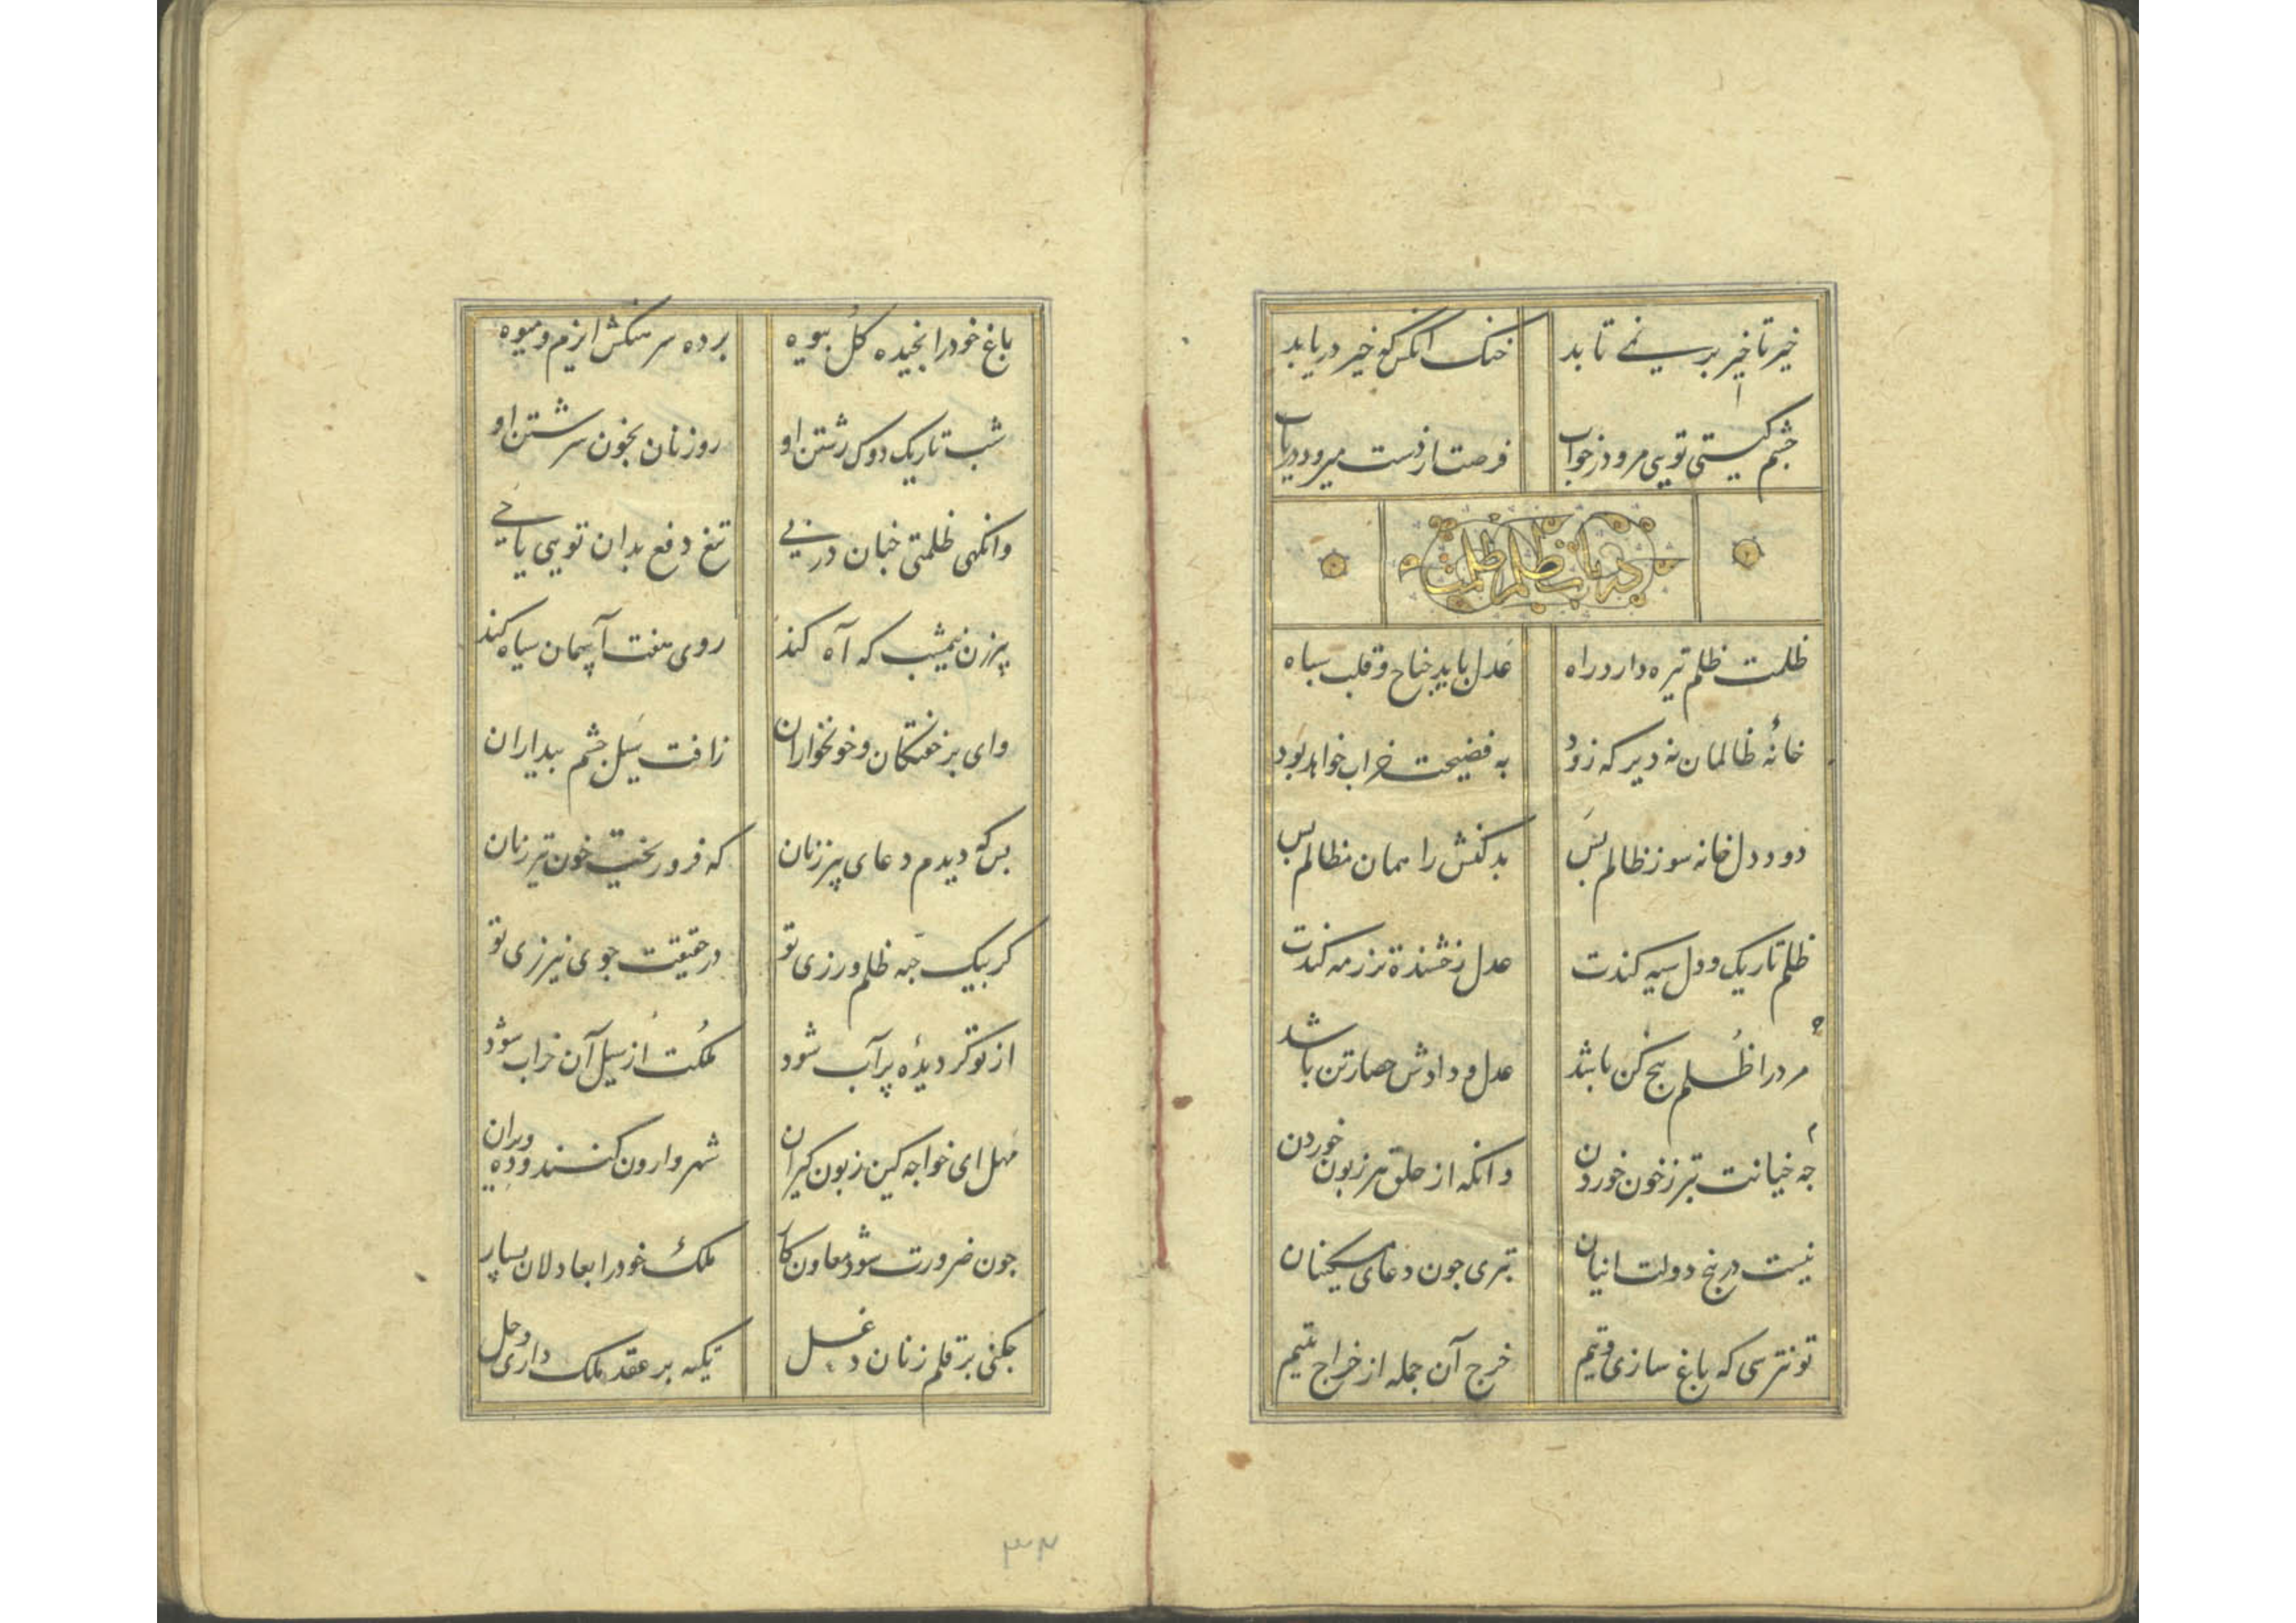 خیز تا خیز بر سنی تابد خنک آنکس کو خیر دریابد
چشم گیتی تویی مرو در خواب فرصت از دست میرود دریاب
در باب ظلم ظلمت
ظلمت ظلم تیره دارد راه عدل باید جناح و قلب سپاه
خانهٔ ظالمان نه دیر که زود به فضیحت خراب خواهد بود
دود دل خانه سوز ظالم بس بد کنش را همان مظالم بس
ظلم تاریک و دل سیه کندت عدل رخشنده‌تر ز مه کندت
مرد را ظلم بیخ کن باشد عدل و دادش حصار تن باشد
چه خیانت بتر ز خون خوردن وانکه از حلق هر زبون خوردن
نیست در بیخ دولت انیان تبری چون دعای مسکینان
تو نترسی که باغ سازی و تیم خرج آن جمله از خراج یتیم
باغ خود را نچیده گل بیوه برده سرهنگش ایزم و میوه
شب تاریک دوک رشتن او روز نان بخون سرشتن او
وانگهی ظلمتی چنان در پی تیغ دفع بدان تویی یا خی
پیرزن نیمشب که آه کند روی هفت آسمان سیاه کند
وای بر خفتگان و خونخواران ز آفت سیل چشم بیداران
بس که دیدم دعای پیر زنان که فرو ریخت خون تیر زنان
گر بیک حبه ظلم ورزی تو در حقیقت جوی نیرزی تو
از تو گر دیدهٔ پر آب شود ملکت از سیل آن خراب شود
مهل ای خواجه کین زبون گیران شهر وارون کنند و ده ویران
چون ضرورت شود معاون کار ملک خود را بعادلان بسپار
چکنی بر قلم زنان دغل تکیه بر عقد ملک داری و حل
۳۴